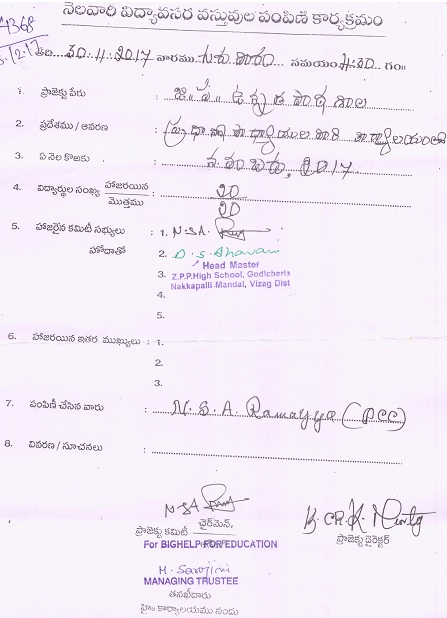 నెలవారి విద్యావసర వస్తువుల పంపిణి కార్యక్రమం
4368
తేది 30.11.2017 వారము గురువారం సమయం 4:30 గం॥
1. ప్రాజెక్టు పేరు : జి.ప. ఉన్నత పాఠశాల
2. ప్రదేశము / ఆవరణ : ప్రధానోపాధ్యాయుల వారి కార్యాలయం
3. ఏ నెల కొఱకు : నవంబరు, 2017
4. విద్యార్థుల సంఖ్య హాజరయిన / మొత్తము : 20 / 20
5. హాజరైన కమిటీ సభ్యులు : 1. N.S.A.
హోదాతో 2. D.S.Bhavani
Head Master
3. Z.P.P.High School, Godicherla
Nakkapalli Mandal, Vizag Dist
4.
5.
6. హాజరయిన ఇతర ముఖ్యులు : 1.
2.
3.
7. పంపిణీ చేసిన వారు : N.S.A. Ramayya (PCC)
8. వివరణ / సూచనలు :
N.S.A
ప్రాజెక్టు కమిటీ చైర్‌మెన్.
K.CH.K. Murty
ప్రాజెక్టు డైరెక్టర్
For BIGHELP FOR EDUCATION
H. Sarojini
MANAGING TRUSTEE
తనఖీదారు
హై॥ కార్యాలయము నందు